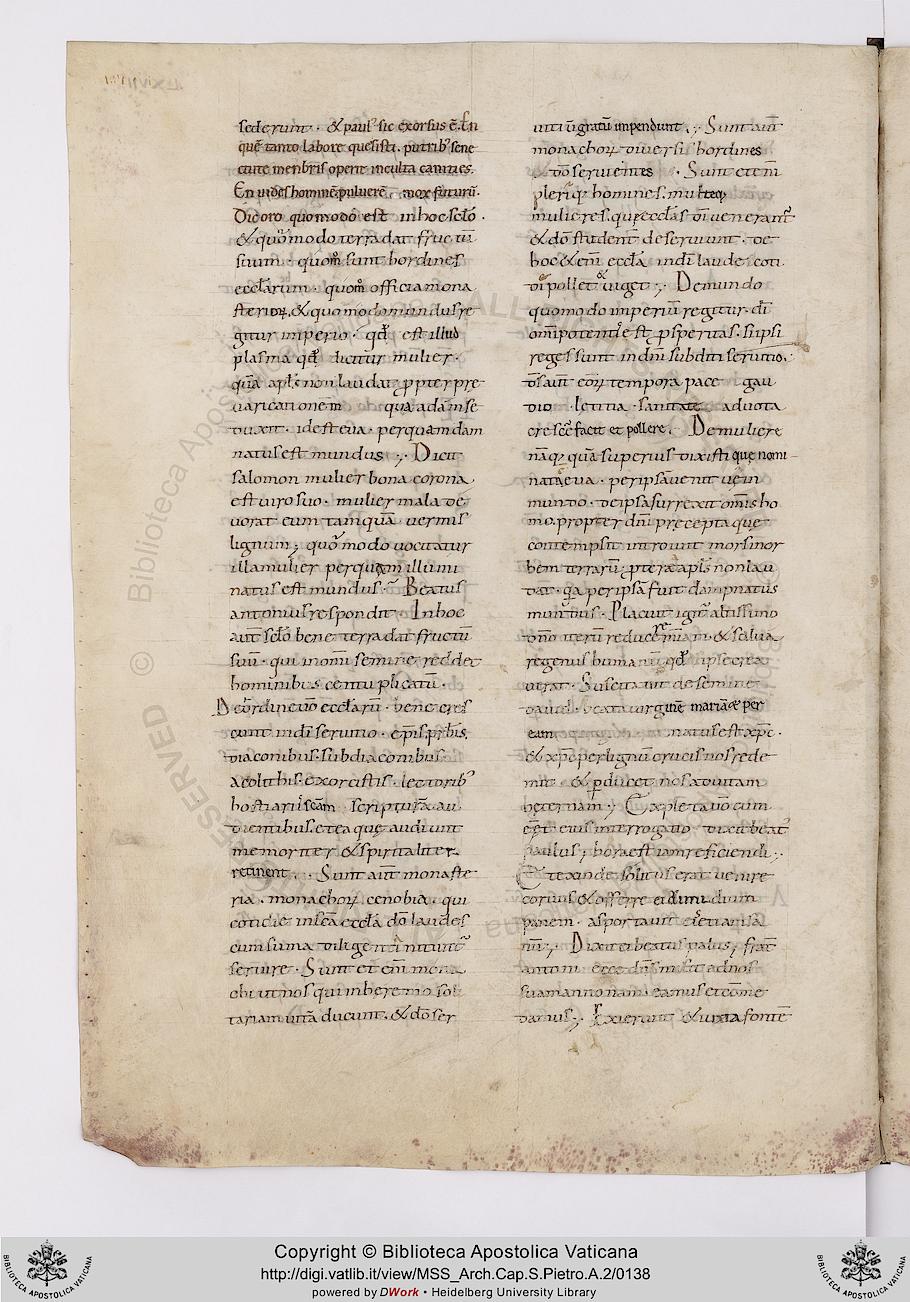 sederunt · & paul' sic exorsus ē. En
quē tanto labore quesisti · putrib' sene
ctute menbris operit inculta canities.
En uides hominē puluerē · mox futurū.
Dic oro quomodo est in hoc sc̄lo ·
& quomodo terra dat fructū
suum · quom̊ sunt hordines
eccl̄arum · quom̊ officia mona
steriorꝝ, & quomodo mundus re
gitur imperio · qđ est illud
plasma qđ dicitur mulier ·
quā apl̄s non laudat ꝓpter pre
uaricationem quā adā in se
duxit · id est eua · per quam dam
natus est mundus ;· Dicit
salomon mulier bona corona
est uiro suo · mulier mala de
uorat eum tamquā uermis
lignum ; quomodo uocitatur
illa mulier per quam illumi
natus est mundus · Beatus
antonius respondit · In hoc
aūt sc̄lo bene terra dat fructū
suū · qui in om̄i semine reddet
hominibus centuplicatū ·
De hordine uō eccl̄arū · bene cres
cunt in dī seruitio · ep̄is pr̄bis
diaconibus · subdiaconibus ·
acolithis · exorcistis · lectorib'
hostiarii · scām scripturā au
dientibus · et ea quę audiunt
memoriter & spiritaliter
retinent ;· Sunt aūt monaste
ria · monachorꝝ cenobia · qui
cotidie in sc̄a eccl̄a dō laudes
cum suma diligentia nituntur
seruire · Sunt et enī mona
chi ut nos qui in heremo soli
tariam uitā ducunt · & dō ser
uitiū gratū inpendunt ;· Sunt aūt
monachorꝝ diuersi hordines
dō seruientes · Sunt etenī
pleriq; homines · multeq;
mulieres · qui eccl̄as dī uenerant̄
& dō student deseruiunt · de
hoc & enī eccl̄a in dī laude coti
die pollet & uiget ;· De mundo
quomodo imperiū regitur · dī
om̄ipotentie est ꝓsperitas · si ipsi
reges sunt in dn̄i subditi seruitio ·
dō saūt eorꝝ tempora pace · gau
dio · letitia · sanitate aduota
cresc̄e facit et pollere · De muliere
nāq; quā superius dixisti que nomi
nata eua · per ipsā uenit uę in
mundo · de ipsa surrexit om̄is ho
mo · propter dn̄i precepta que
contempsit introiuit mors in or
bem terrarū · ꝓpterea apl̄s non lau
dat · qa per ipsā fuit dampnatus
mundus · Placuit igit̄ altissimo
dn̄o iterū reducere · & salua
re genus humanū qđ ipse crea
uerat · Suscitauit de semine
dauid · beata uirgine mariā & per
eam natus est xp̄c ·
& xp̄c per lignū crucis nos rede
mit · & perducet nos ad uitam
ęternam ;· Expleta uō cum
eēt eius interrogatio dixit beat'
paulus ; hora est iam reficiendi ;·
Et exinde solitus erat uenire
coruus & offerre ei dimidium
panem · asportauit ei etiam sa
nū ;· Dixit ei beatus palus ; frat̄
antoni ecce dn̄s misit ad nos
suam annonam · eamus et come
damus ;· Exierunt & iuxta fontē